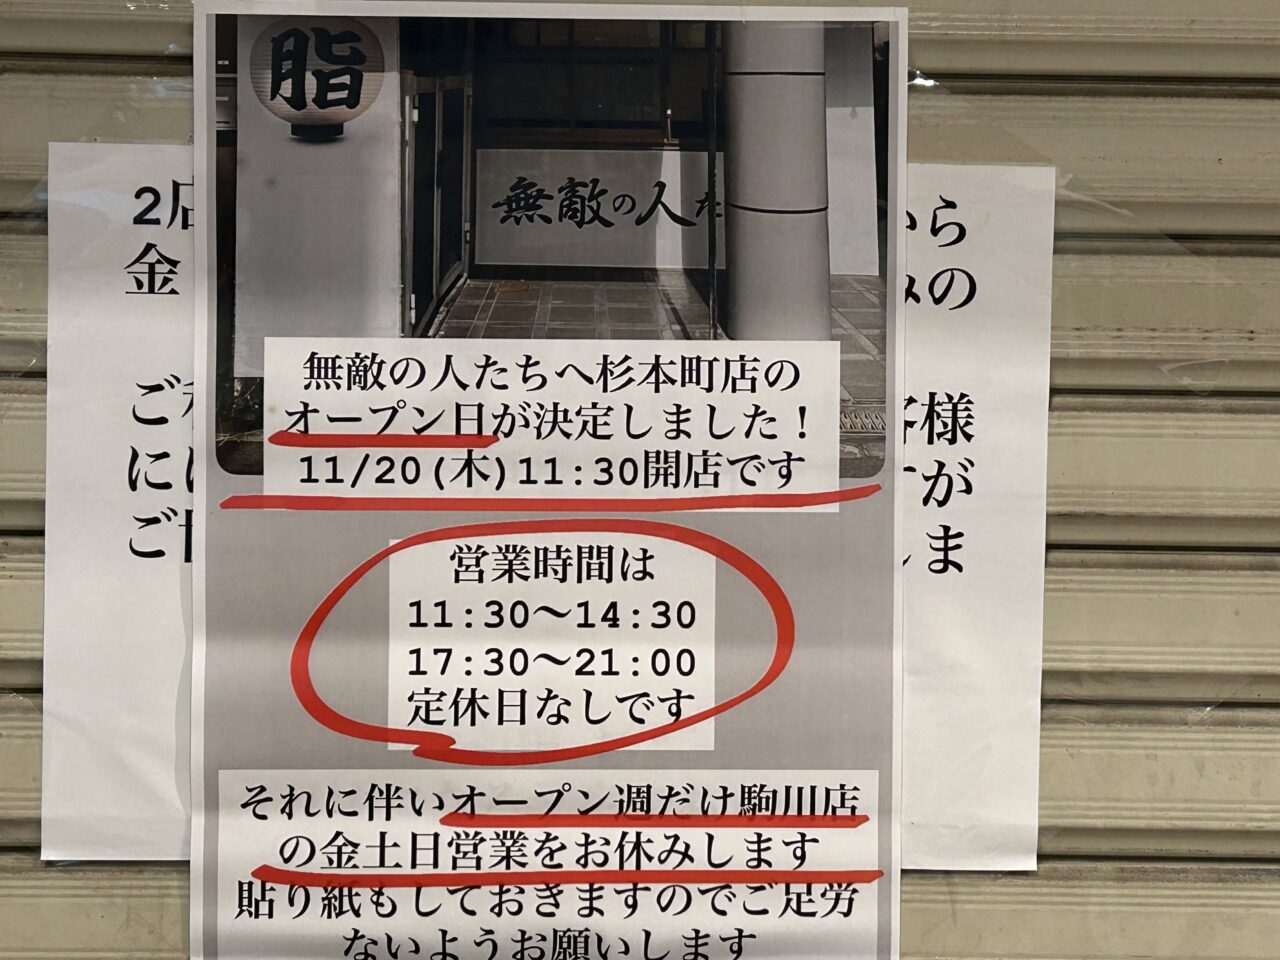 脂
無敵の人た
2店
金
から
みの
無敵の人たちへ杉本町店の
オープン日が決定しました！
11/20(木)11:30開店です
ご
に
ご
様
が
ま
営業時間は
11:30〜14:30
17:30〜21:00
定休日なしです
それに伴いオープン週だけ駒川店
の金土日営業をお休みします
貼り紙もしておきますのでご足労
ないようお願いします